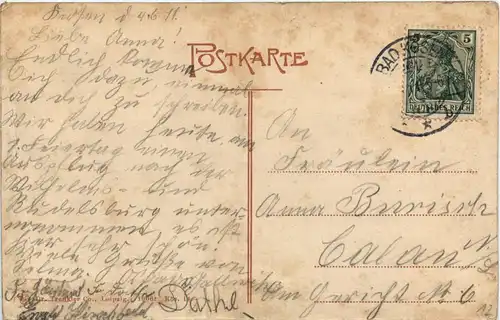 Kösen d. 4.6.11.
Liebe Anna!
Endlich komme
ich dazu, einmal
an dich zu schreiben.
Wir haben heute am
1. Feiertag einen
Ausflug nach der
Wilhelms- und
Rudelsburg unter-
nommen es ist
hier sehr schön.
Viele Grüße von
Selma
Dathe
POSTKARTE
BAD KÖSEN
5
DEUTSCHES REICH
An
Fräulein
Anna Burisch
Calau
Am Gericht No 6
Trenkler Co., Leipzig.